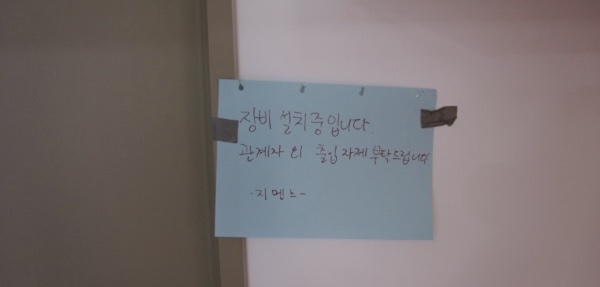 장비 설치중입니다.
관계자 외 출입 자제 부탁드립니다
-지멘스-